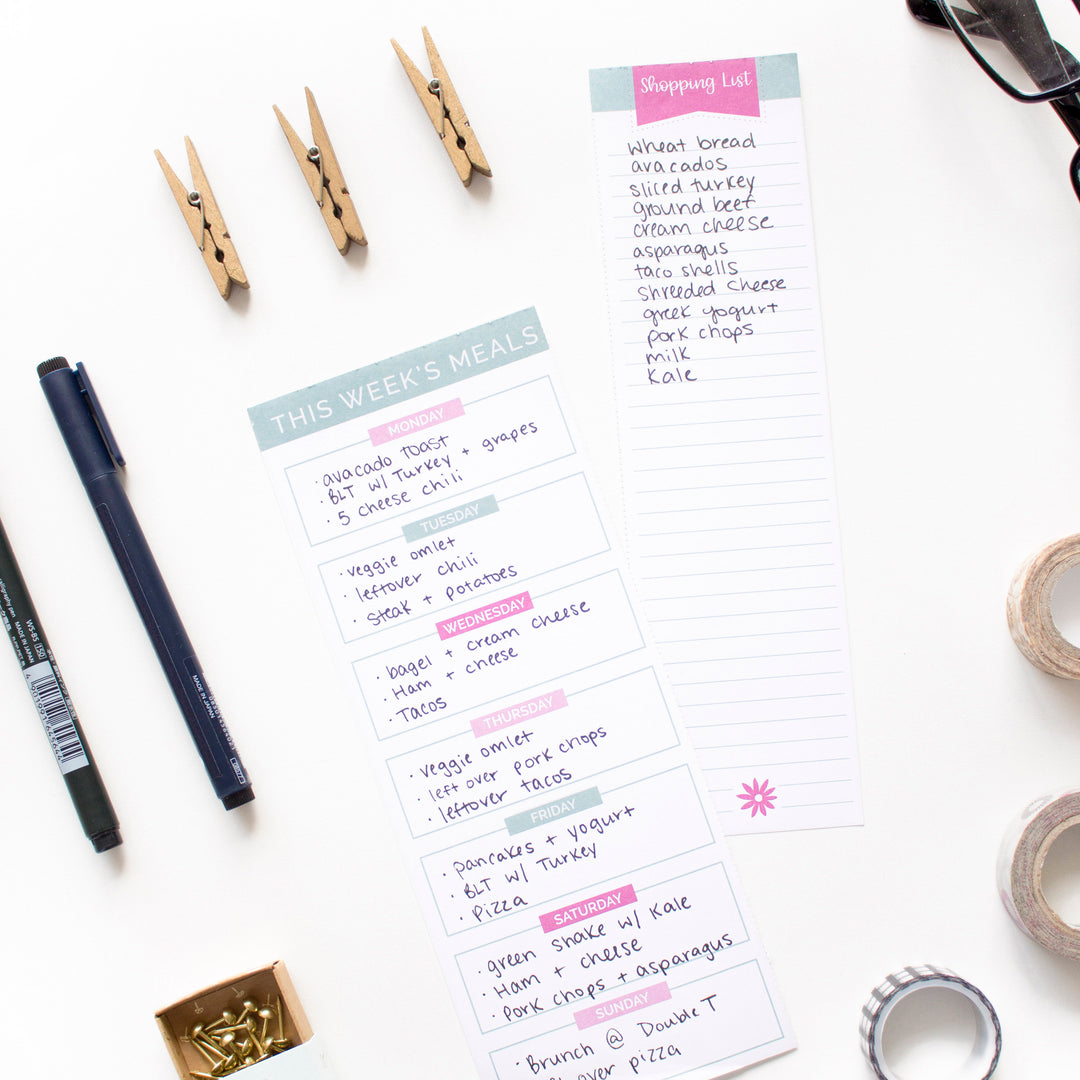 Shopping List
wheat bread
avacados
sliced turkey
ground beef
cream cheese
asparagus
taco shells
shreeded cheese
greek yogurt
pork chops
milk
kale
THIS WEEK'S MEALS
MONDAY
· avacado toast
· BLT w/ Turkey + grapes
· 5 cheese chili
TUESDAY
· veggie omlet
· leftover chili
· steak + potatoes
WEDNESDAY
· bagel + cream cheese
· Ham + cheese
· Tacos
THURSDAY
· veggie omlet
· left over pork chops
· leftover tacos
FRIDAY
· pancakes + yogurt
· BLT w/ Turkey
· Pizza
SATURDAY
· green shake w/ kale
· Ham + cheese
· pork chops + asparagus
SUNDAY
· Brunch @ Double T
over pizza
WS-BS (150)
MADE IN JAPAN
4 901991 645644
MADE IN JAPAN